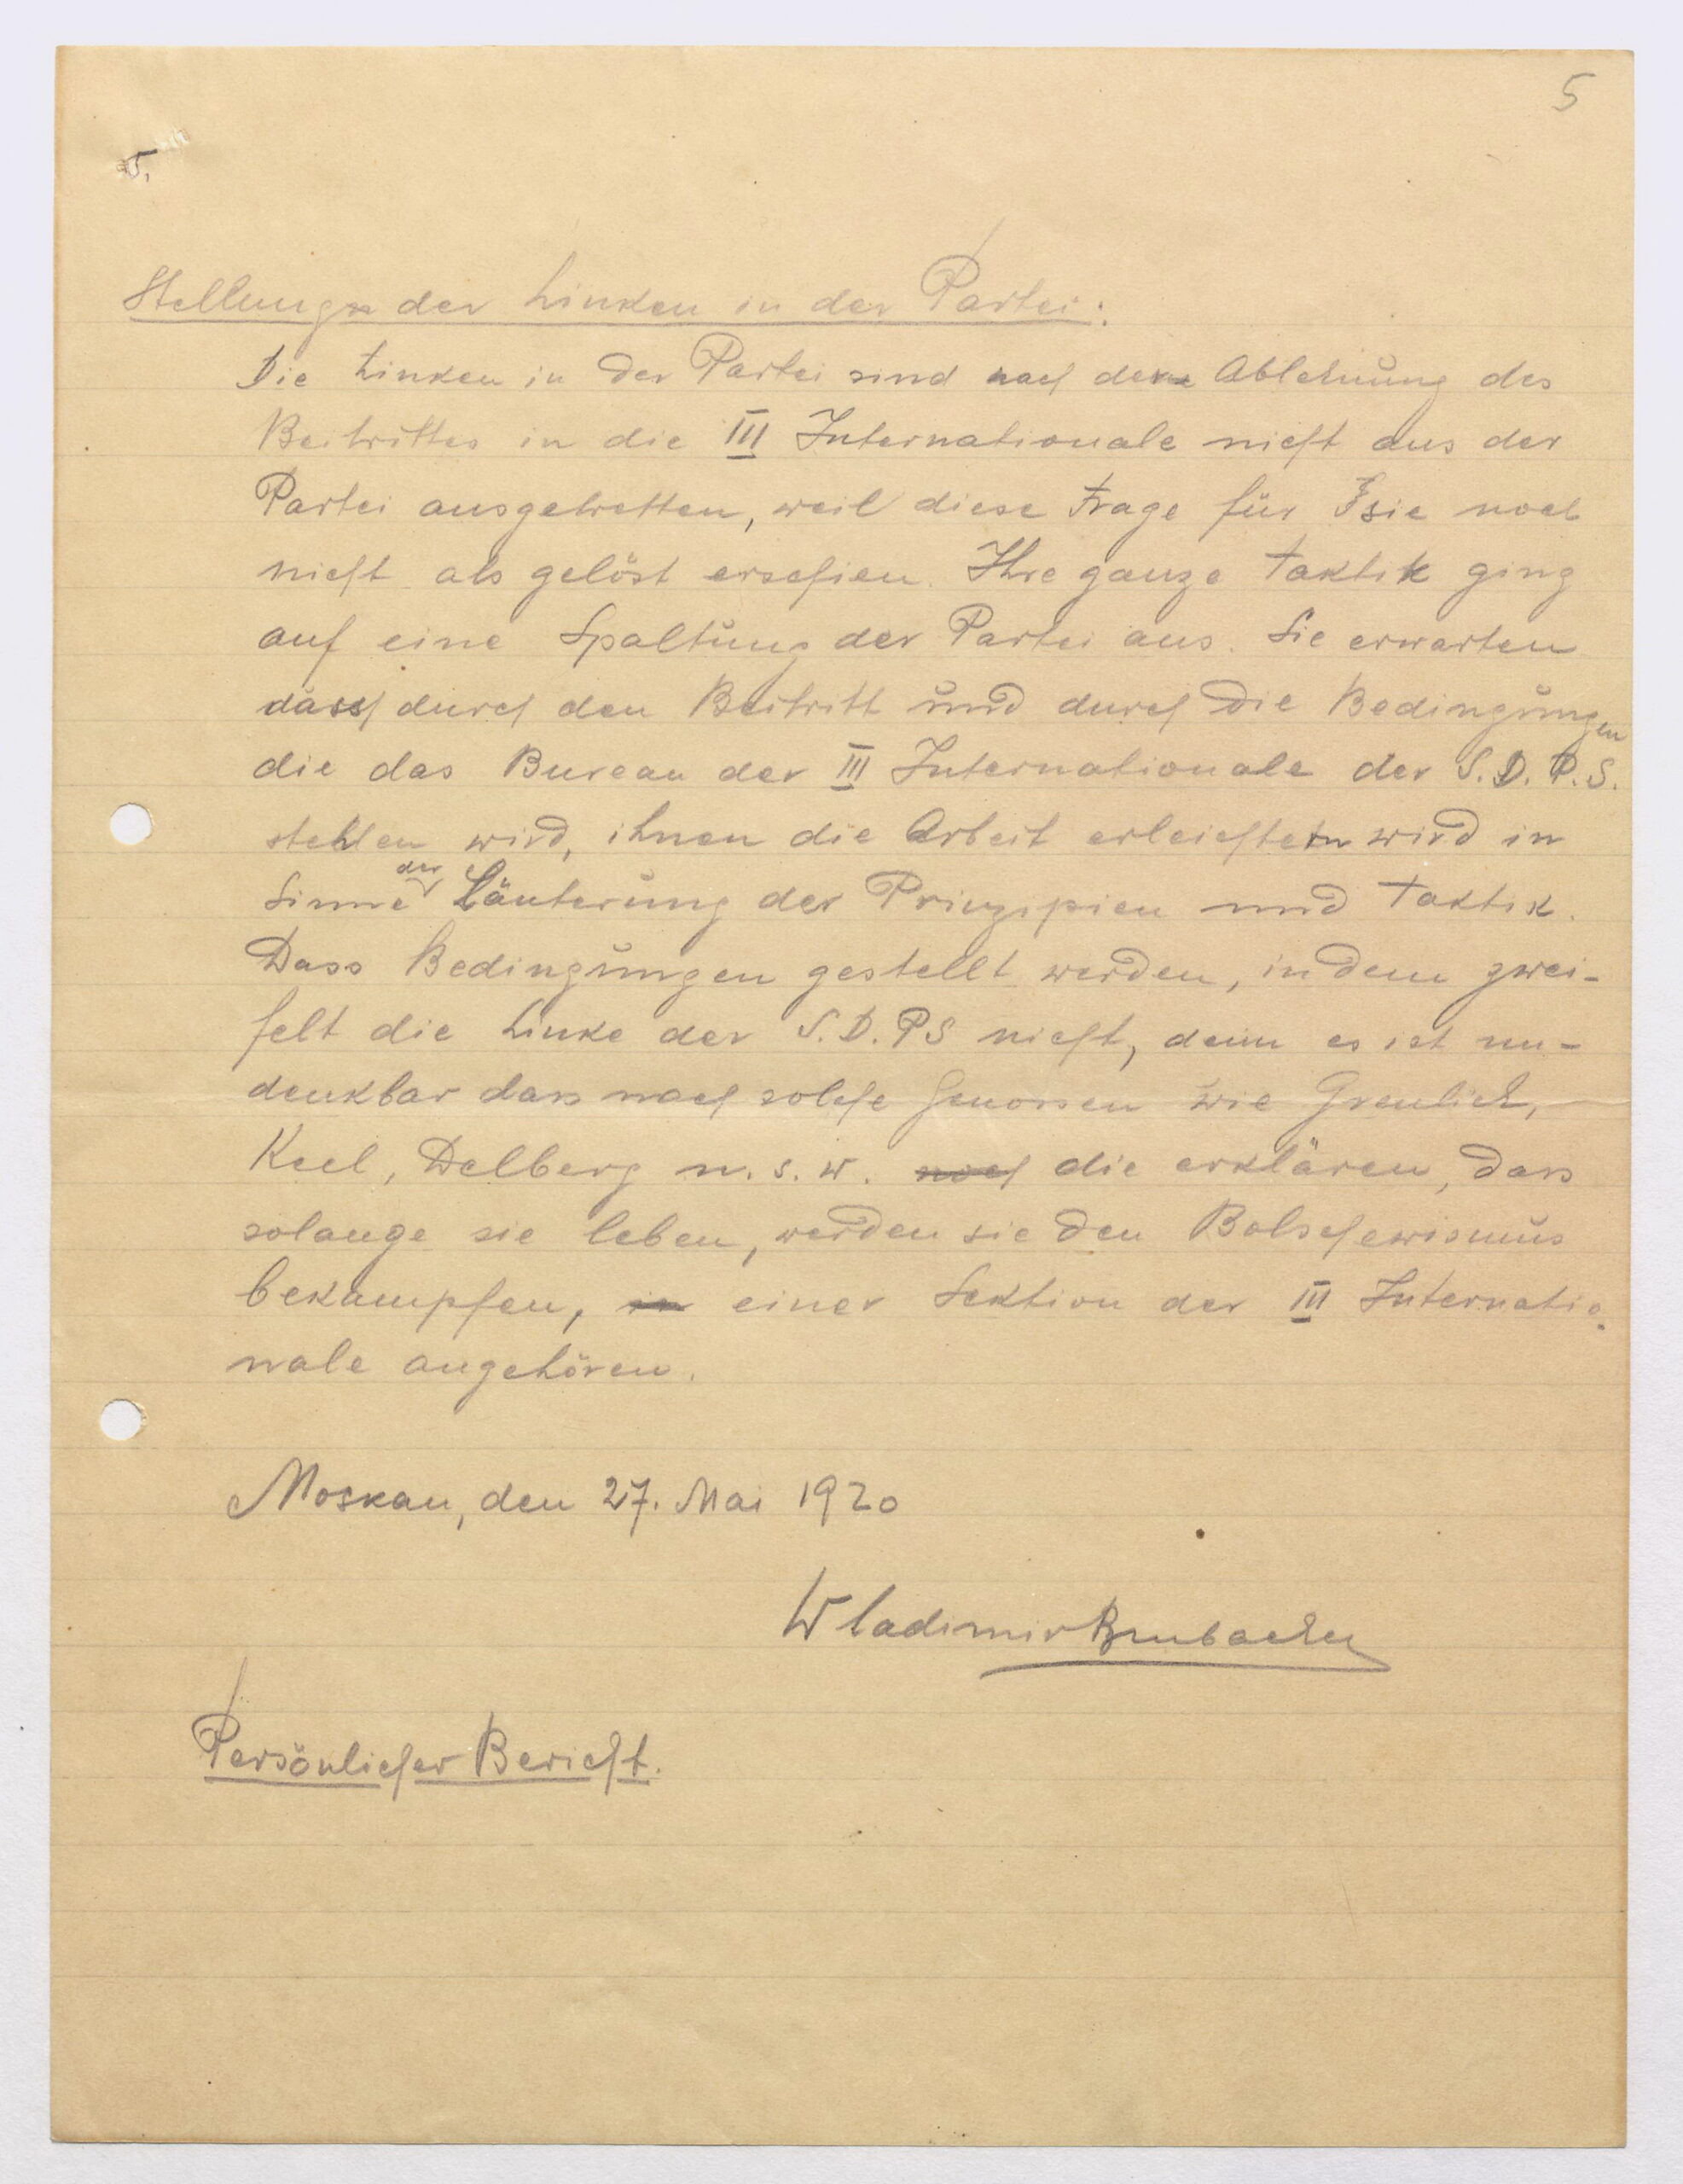 5
5.
Stellung der Linken in der Partei:
Die Linken in der Partei sind nach der Ablehnung des
Beitrittes in die III Internationale nicht aus der
Partei ausgetretten, weil diese Frage für sie noch
nicht als gelöst erschien. Ihre ganze Taktik ging
auf eine Spaltung der Partei aus. Sie erwarten
dass durch den Beitritt und durch die Bedingungen
die das Bureau der III Internationale der S.D.P.S.
stehlen wird, ihnen die Arbeit erleichtern wird in
Sinne der Läuterung der Prinzipien und Taktik.
Dass Bedingungen gestellt werden, in dem zwei-
felt die Linke der S.D.PS nicht, denn es ist un-
denkbar dass noch solche Genossen wie Greulich,
Keel, Delberg u.s.w. noch die erklären, dass
solange sie leben, werden sie den Bolschewismus
bekämpfen, in einer Sektion der III Internatio-
nale angehören.
Moskau, den 27. Mai 1920
Wladimir Brubacher
Persönlicher Bericht.